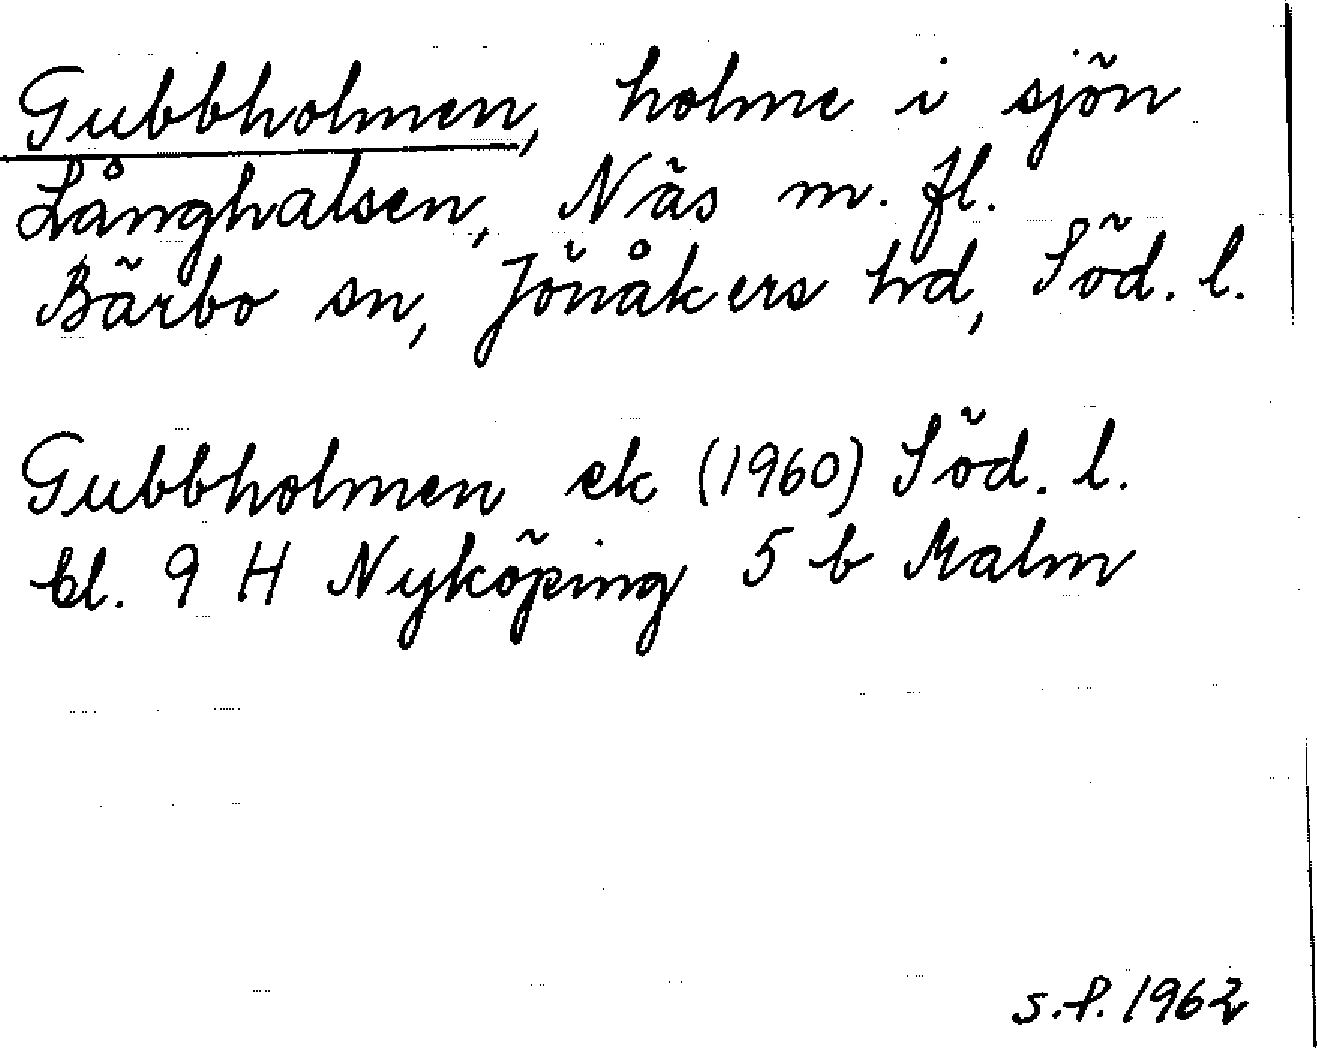 Gubbholmen, holme i sjön
Långhalsen, Näs m. fl.
Bärbo sn, Jönåkers hd, Söd. l.
Gubbholmen ek (1960) Söd. l.
bl. 9 H Nyköping 5 b Malm
s.f. 1962